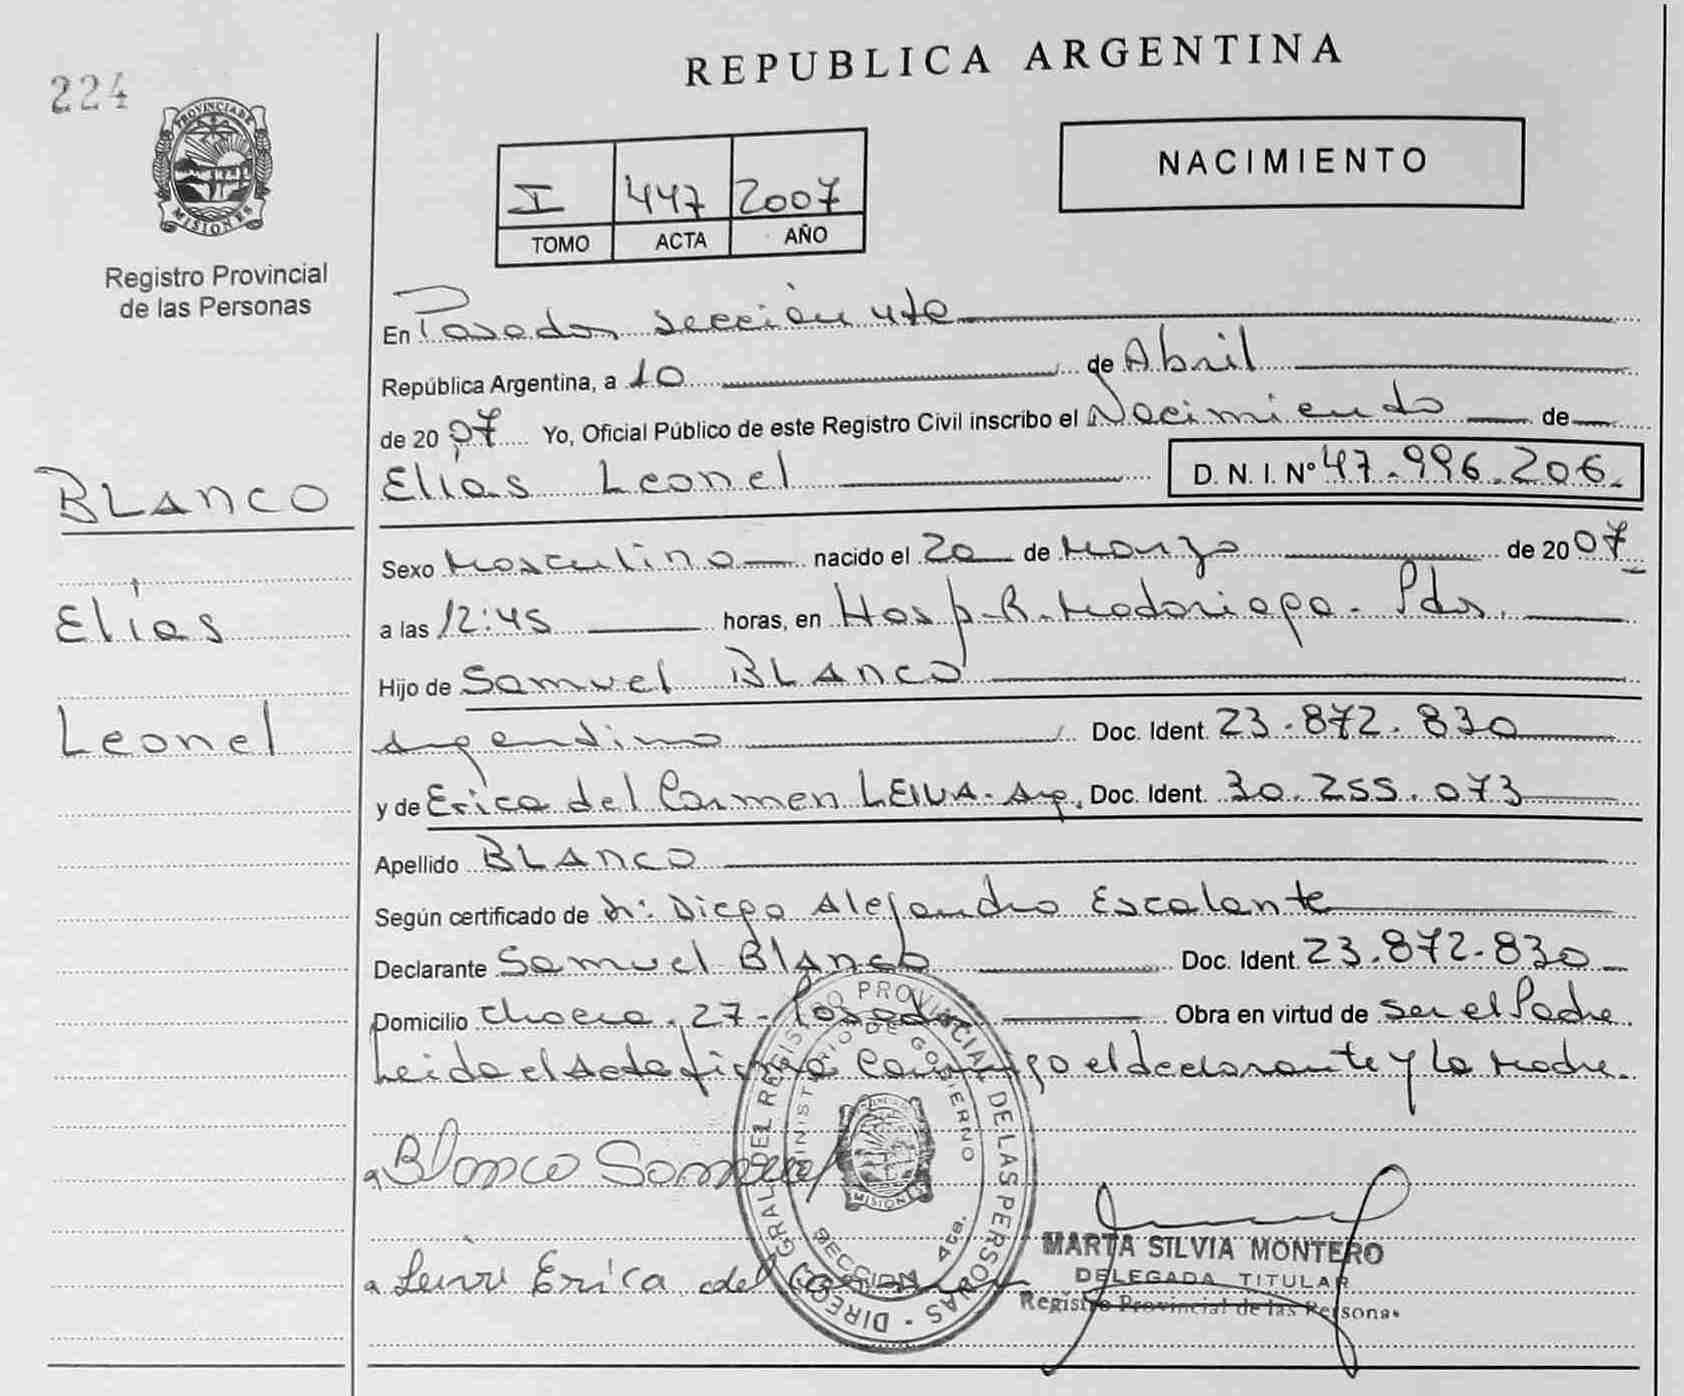 224
PROVINCIA DE
MISIONES
Registro Provincial
de las Personas
BLANCO
Elías
Leonel
REPUBLICA ARGENTINA
I 447 2007
TOMO ACTA AÑO
NACIMIENTO
En Posadas sección 4ta
República Argentina, a 10 de Abril
de 2007 Yo, Oficial Público de este Registro Civil inscribo el Nacimiento de
Elías Leonel D. N. I. Nº 47.996.206.
Sexo Masculino nacido el 20 de Marzo de 2007
a las 12:45 horas, en Hosp. R. Madariaga - Pdas.
Hijo de Samuel BLANCO
Argentino Doc. Ident. 23.872.830
y de Erica del Carmen LEIVA - Arg. Doc. Ident. 30.255.073
Apellido BLANCO
Según certificado de Dr. Diego Alejandro Escalante
Declarante Samuel Blanco Doc. Ident. 23.872.830
Domicilio Chacra. 27 - Posadas Obra en virtud de ser el Padre
Leída el Acta firma conmigo el declarante y la Madre.
a Blanco Samuel
a Leiva Erica del Carmen
DIREC. GRAL. DEL REGISTRO PROVINCIAL DE LAS PERSONAS -
MINISTERIO DE GOBIERNO
MISIONES
SECCION 4ta.
MARTA SILVIA MONTERO
DELEGADA TITULAR
Registro Provincial de las Personas